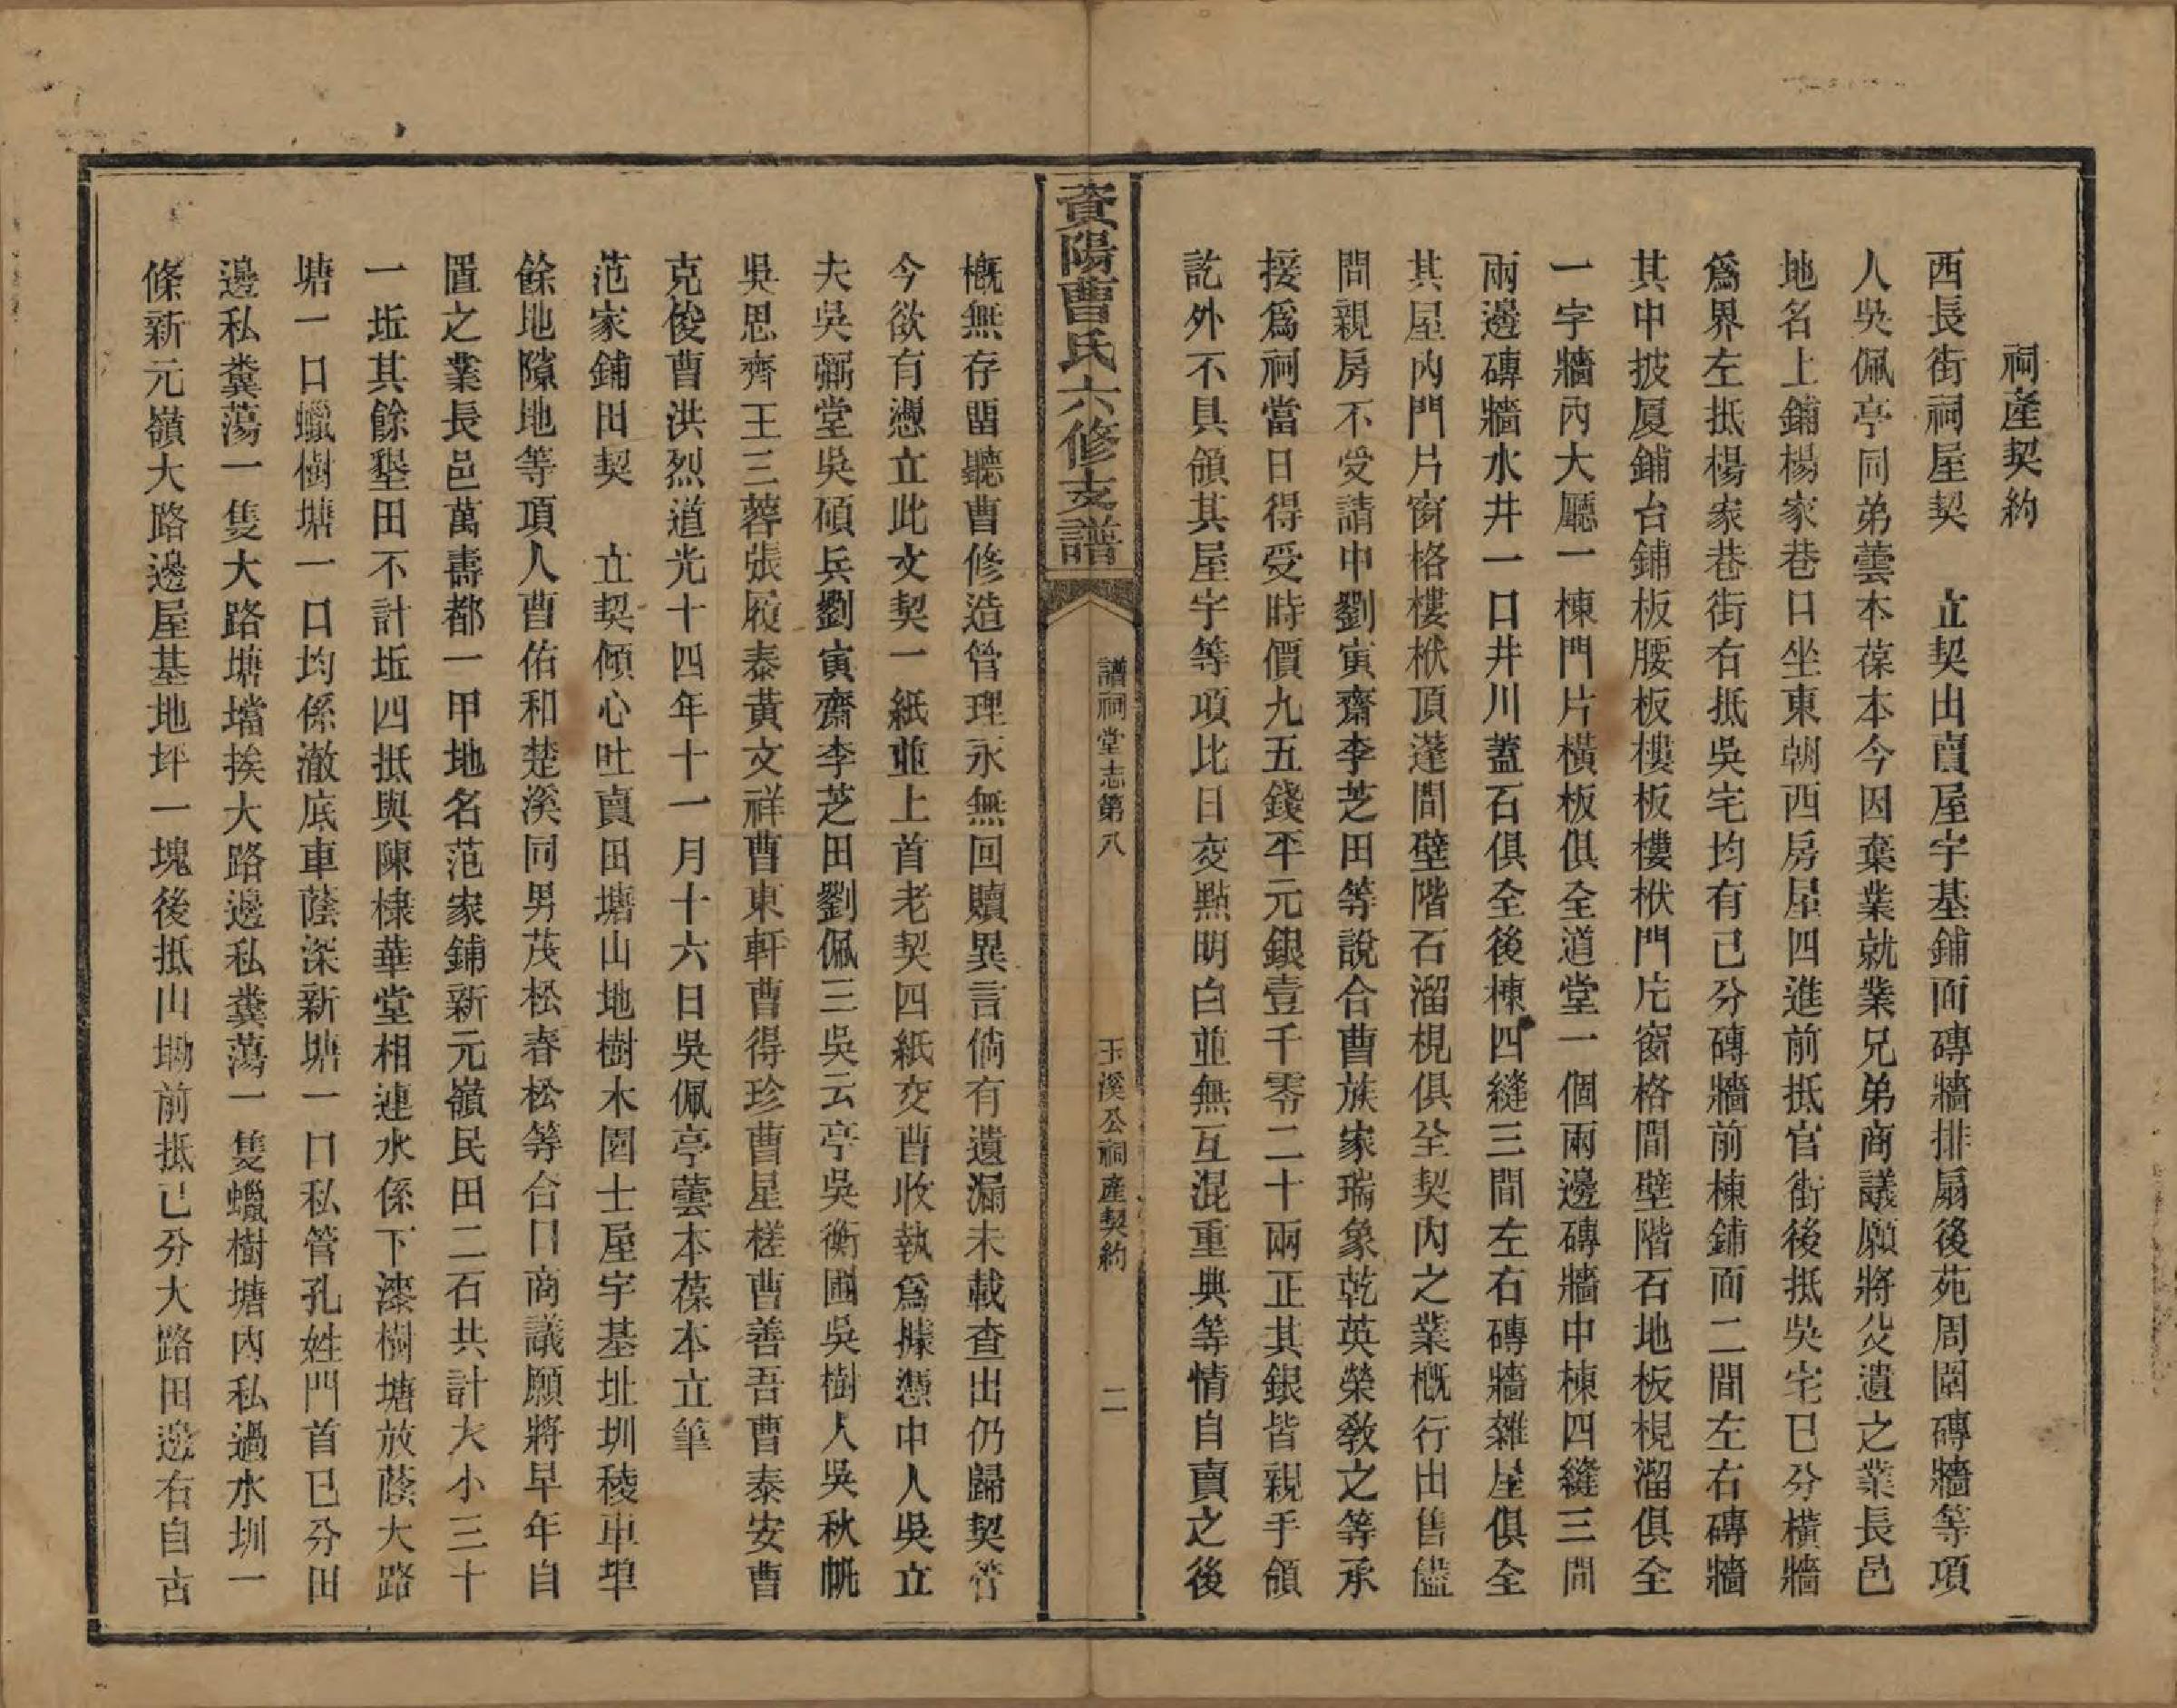 祠產契約
西長街祠屋契　立契出賣屋宇基鋪面磚牆排扇後苑周圍磚牆等項
人吳佩亭同弟蕓本葆本今因棄業就業兄弟商議願將父遺之業長邑
地名上鋪楊家巷口坐東朝西房屋四進前抵官街後抵吳宅已分橫牆
爲界左抵楊家巷街右抵吳宅均有已分磚牆前棟鋪面二間左右磚牆
其中披厦鋪台鋪板腰板樓板樓栿門片窗格間壁階石地板梘溜俱全
一字牆內大廳一棟門片橫板俱全道堂一個兩邊磚牆中棟四縫三間
兩邊磚牆水井一口井川蓋石俱全後棟四縫三間左右磚牆雜屋俱全
其屋內門片窗格樓栿頂蓬間壁階石溜梘俱全契內之業概行出售儘
問親房不受請中劉寅齋李芝田等說合曹族家瑞象乾英榮敎之等承
接爲祠當日得受時價九五錢平元銀壹千零二十兩正其銀皆親手領
訖外不具領其屋宇等項比日交點明白並無互混重典等情自賣之後
資陽曹氏六修支譜
譜祠堂志第八
玉溪公祠產契約
二
概無存畱聽曹修造管理永無回贖異言倘有遺漏未載查出仍歸契管
今欲有憑立此文契一紙並上首老契四紙交曹收執爲據憑中人吳立
夫吳彌堂吳碩兵劉寅齋李芝田劉佩三吳云亭吳衡圃吳樹人吳秋帆
吳思齊王三蓉張履泰黃文祥曹東軒曹得珍曹星槎曹善吾曹泰安曹
克俊曹洪烈道光十四年十一月十六日吳佩亭蕓本葆本立筆
范家鋪田契　立契傾心吐賣田塘山地樹木園土屋宇基址圳稜車埠
餘地隙地等項人曹佑和楚溪同男茂松春松等合口商議願將早年自
置之業長邑萬壽都一甲地名范家鋪新元嶺民田二石共計大小三十
一坵其餘墾田不計坵四抵與陳棣華堂相連水係下漆樹塘放蔭大路
塘一口蠟樹塘一口均係澈底車蔭深新塘一口私管孔姓門首已分田
邊私糞蕩一隻大路塘壋挨大路邊私糞蕩一隻蠟樹塘內私過水圳一
條新元嶺大路邊屋基地坪一塊後抵山坳前抵已分大路田邊右自古